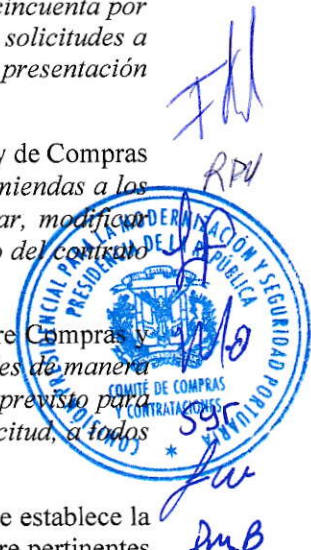 cincuenta por
solicitudes a
presentación
y de Compras
miendas a los
ar, modificar
o del contrato
re Compras y
es de manera
previsto para
citud, a todos
e establece la
re pertinentes
COMISIÓN PRESIDENCIAL PARA LA MODERNIZACIÓN Y SEGURIDAD PORTUARIA
PRESIDENCIA DE LA REPÚBLICA
COMITÉ DE COMPRAS
Y CONTRATACIONES
RPV
DmB